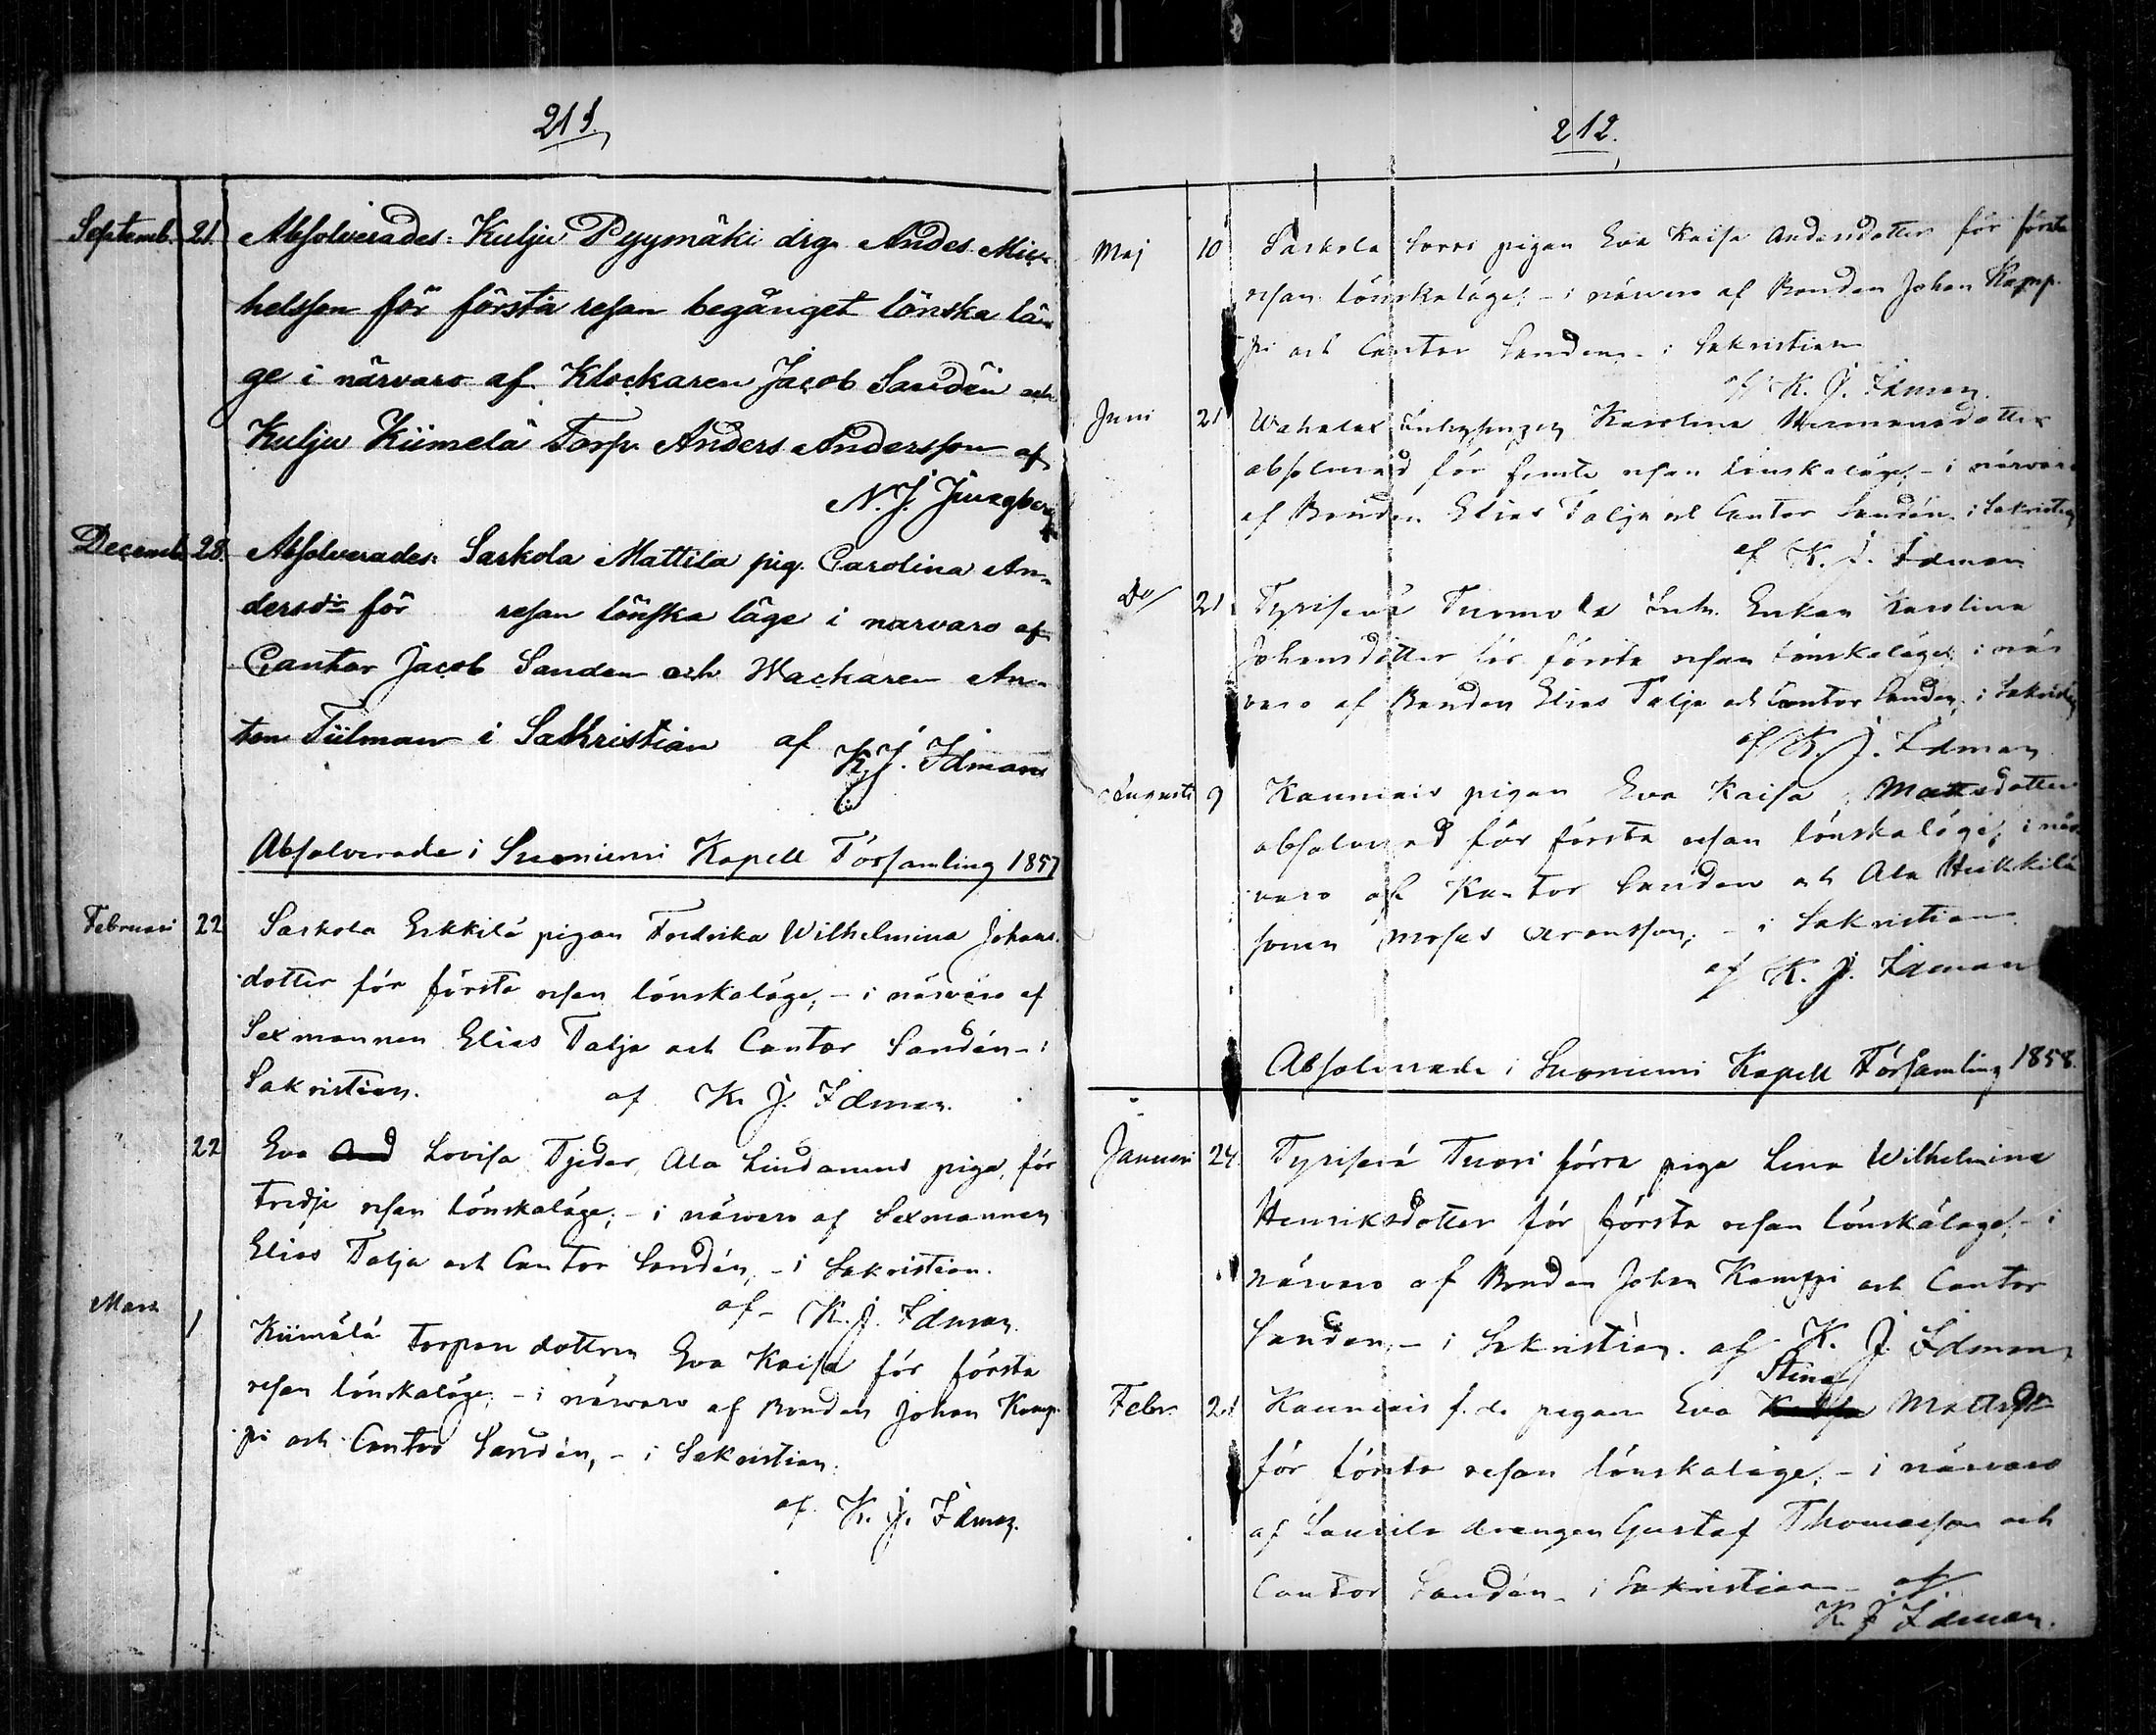 211.
Septemb. 21. Absolverades: Kulju Pyymäki drg. Andes Mic-
helsson för första resan begånget lönska lä-
ge i närvaro af Klockaren Jacob Sandén och
Kulju Kiimelä Torp. Anders Andersson af
N. J. Jungberg
Decemb. 28. Absolverades: Sarkola Mattila pig. Carolina An-
dersdr för resan lönska läge i narvaro af
Cantor Jacob Sanden och Wackaren An-
ton Tiilman i Sakristian af K. J. Idman
Absolverade i Suoniemi Kapell Församling 1857
Februari 22 Sarkola Erkkilä pigan Fredrika Wilhelmina Johans-
dotter för första resan lönskaläge; - i närvaro af
Sexmannen Elias Talja och Cantor Sandén - i
Sakristian. af K. J. Idman.
22 Eva Lovisa Tjeder, Ala Lindamus piga, för
tredje resan lönskaläge; - i närvaro af Sexmannen
Elias Talja och Cantor Sandén, - i Sakristian.
af - K. J. Idman.
Mars 1 Kiimälä torpare dottren Eva Kaisa för första
resan lönskaläge; - i närvaro af Bonden Johan Kamp-
pi och Cantor Sandén, - i Sakristian.
af K. J. Idman.
212.
Maj 10 Sarkola pigan Eva Kaisa Andersdotter för första
resan lönskaläge; - i närvaro af Bonden Johan Kamp-
pi och Cantor Sanden - i Sakristian
af K. J. Idman.
Juni 21 Karolina Hermansdotter
absolverad för femte resan lönskaläge; - i närvaro
af Bonden Elias Talja och Cantor Sandén i Sakristian
af K. J. Idman
Do 21 Tyrisevä Tuomola Inh. Enkan Karolina
Johansdotter för första resan lönskaläge; i när
varo af Bonden Elias Talja och Cantor Sanden, i Sakristian
af K. J. Idman
Augusti 9 Kauniais pigan Eva Kaisa Mattsdotter
absolverad för första resan lönskaläge; i när-
varo af Kantor Sanden och Ala Heikkilä
sonen Moses Aronsson; - i Sakristian.
af K. J. Idman
Absolverade i Suoniemi Kapell Församling 1858.
Januari 24. Tyrisevä Tuori förra piga Lena Wilhelmina
Henriksdotter för första resan lönskaläge; - i
närvaro af Bonden Johan Kamppi och Cantor
Sanden, - i Sakristian. af K. J. Idman
Stina
Febr. 21 Kauniais f. d. pigan Eva Mattsdr
för första resan lönskaläge, - i närvaro
af Laurila drengen Gustaf Thomasson och
Cantor Sandén - i Sakristian - af
K. J. Idman.